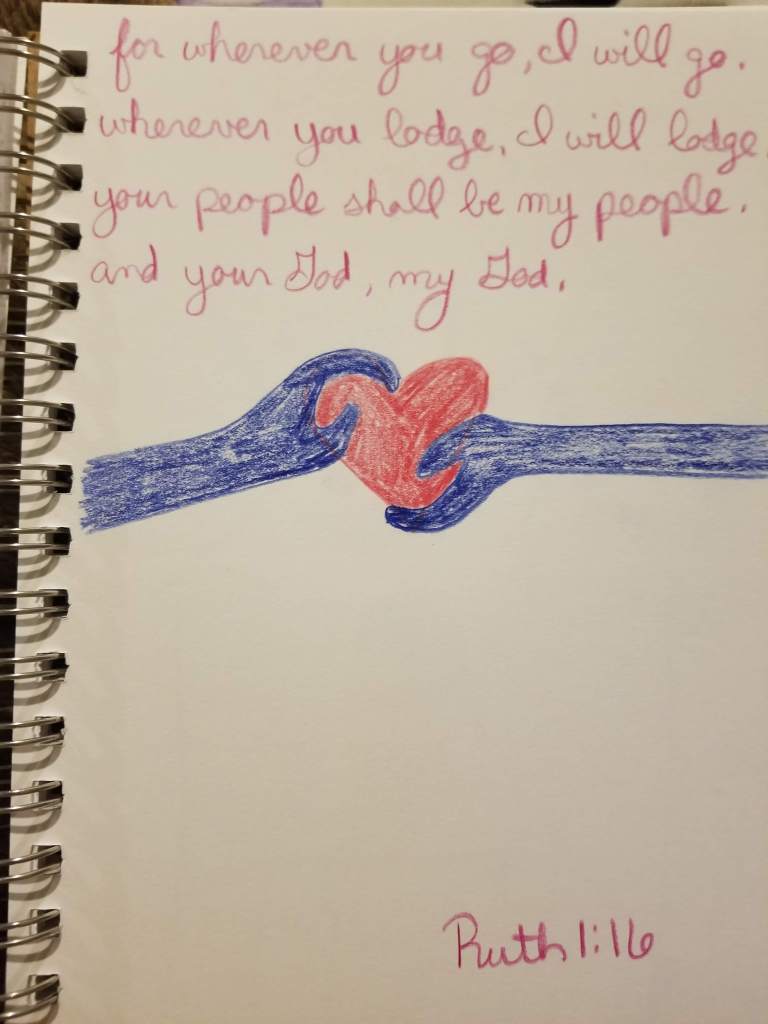 for wherever you go, I will go.
wherever you lodge, I will lodge.
your people shall be my people.
and your God, my God.
Ruth 1:16